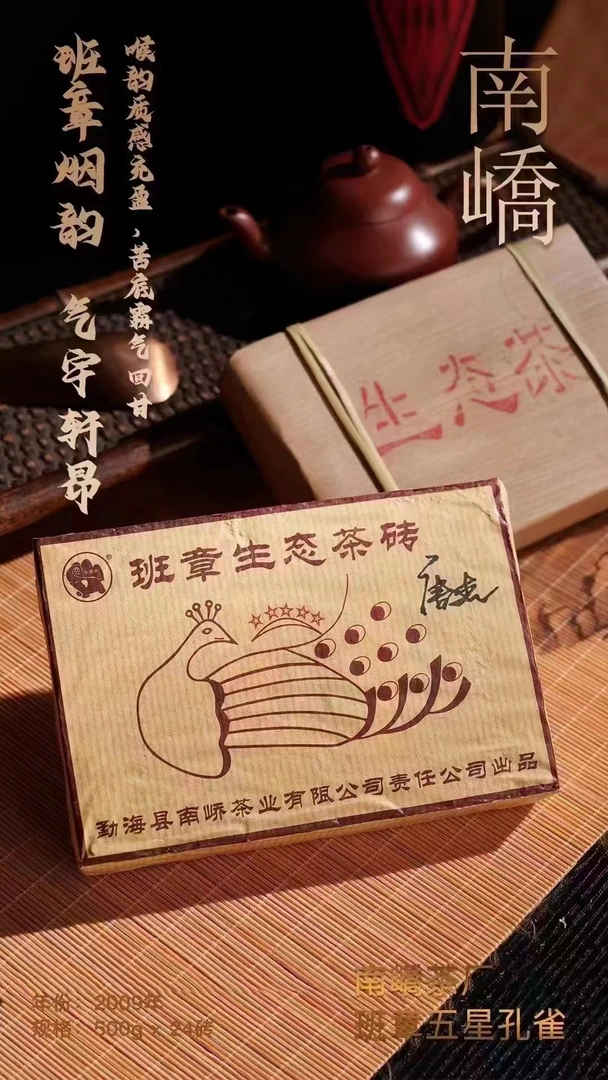 南嶠
喉韵质感充盈，苦底霸气回甘
班章烟韵 气宇轩昂
生态茶
班章生态茶砖
勐海县南峤茶业有限公司责任公司出品
年份：2009年
规格：500g x 24砖
南嶠茶厂
班章五星孔雀